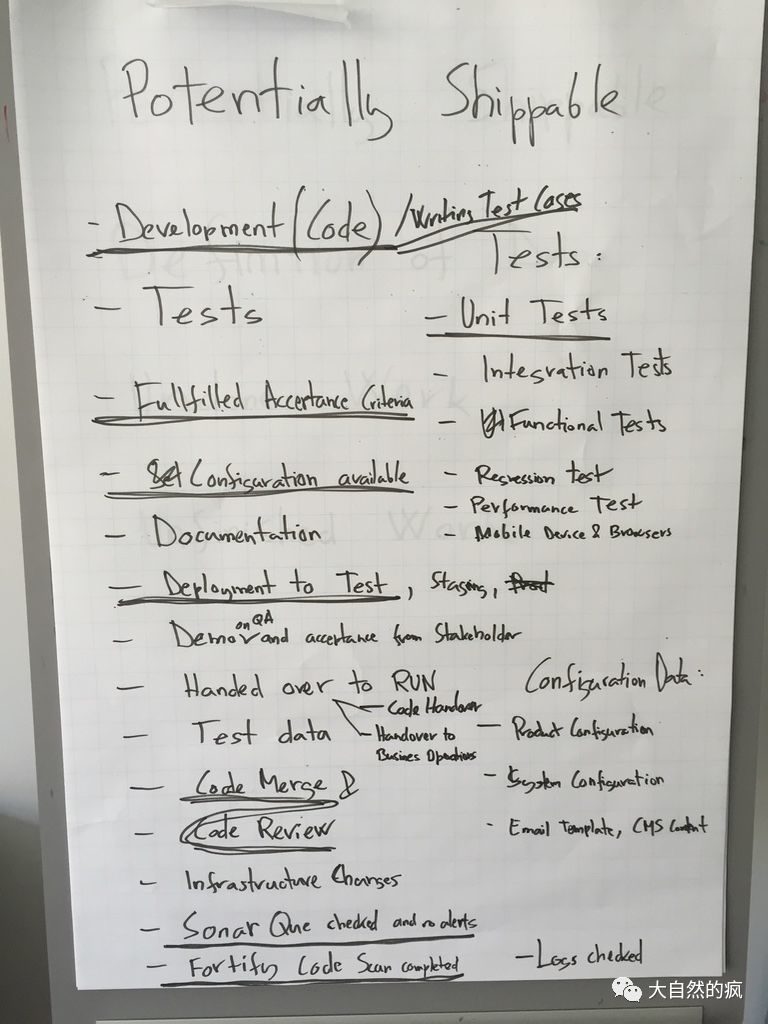 Potentially Shippable
- Development (Code) / Writing Test Cases
- Tests
- Fullfilled Acceptance Criteria
- Configuration available
- Documentation
- Deployment to Test, Staging, Prod
- Demo on QA and acceptance from Stakeholder
- Handed over to RUN
- Code Handover
- Handover to
Busines Operations
- Test data
- Code Merge &
- Code Review
- Infrastructure Changes
- Sonar Que checked and no alerts
- Fortify Code Scan completed
Tests:
- Unit Tests
- Integration Tests
- Functional Tests
- Regression test
- Performance Test
- Mobile Device & Browsers
Configuration Data:
- Product Configuration
- System Configuration
- Email Template, CMS Content
- Logs checked
大自然的疯